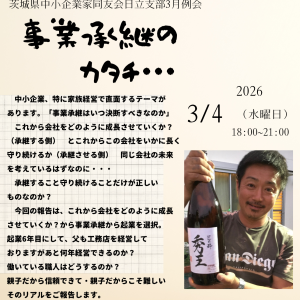 茨城県中小企業家同友会日立支部3月例会
事業承継の
カタチ・・・
2026
3/4
（水曜日）
18:00~21:00
中小企業、特に家族経営で直面するテーマが
あります。「事業承継はいつ決断すべきなのか」
これから会社をどのように成長させていくか？
（承継する側）　とこれからこの会社をいかに長く
守り続けるか（承継させる側）　同じ会社の未来
を考えているはずなのに・・・
承継すること守り続けることだけが正しい
ものなのか？
今回の報告は、これから会社をどのように成長
させていくか？から事業承継から起業を選択。
起業6年目にして、父も工務店を経営して
おりますがあと何年経営できるのか？
働いている職人はどうするのか？
親子だから信頼できて・親子だからこそ難しい
そのリアルをご報告します。
秀王
San Diego